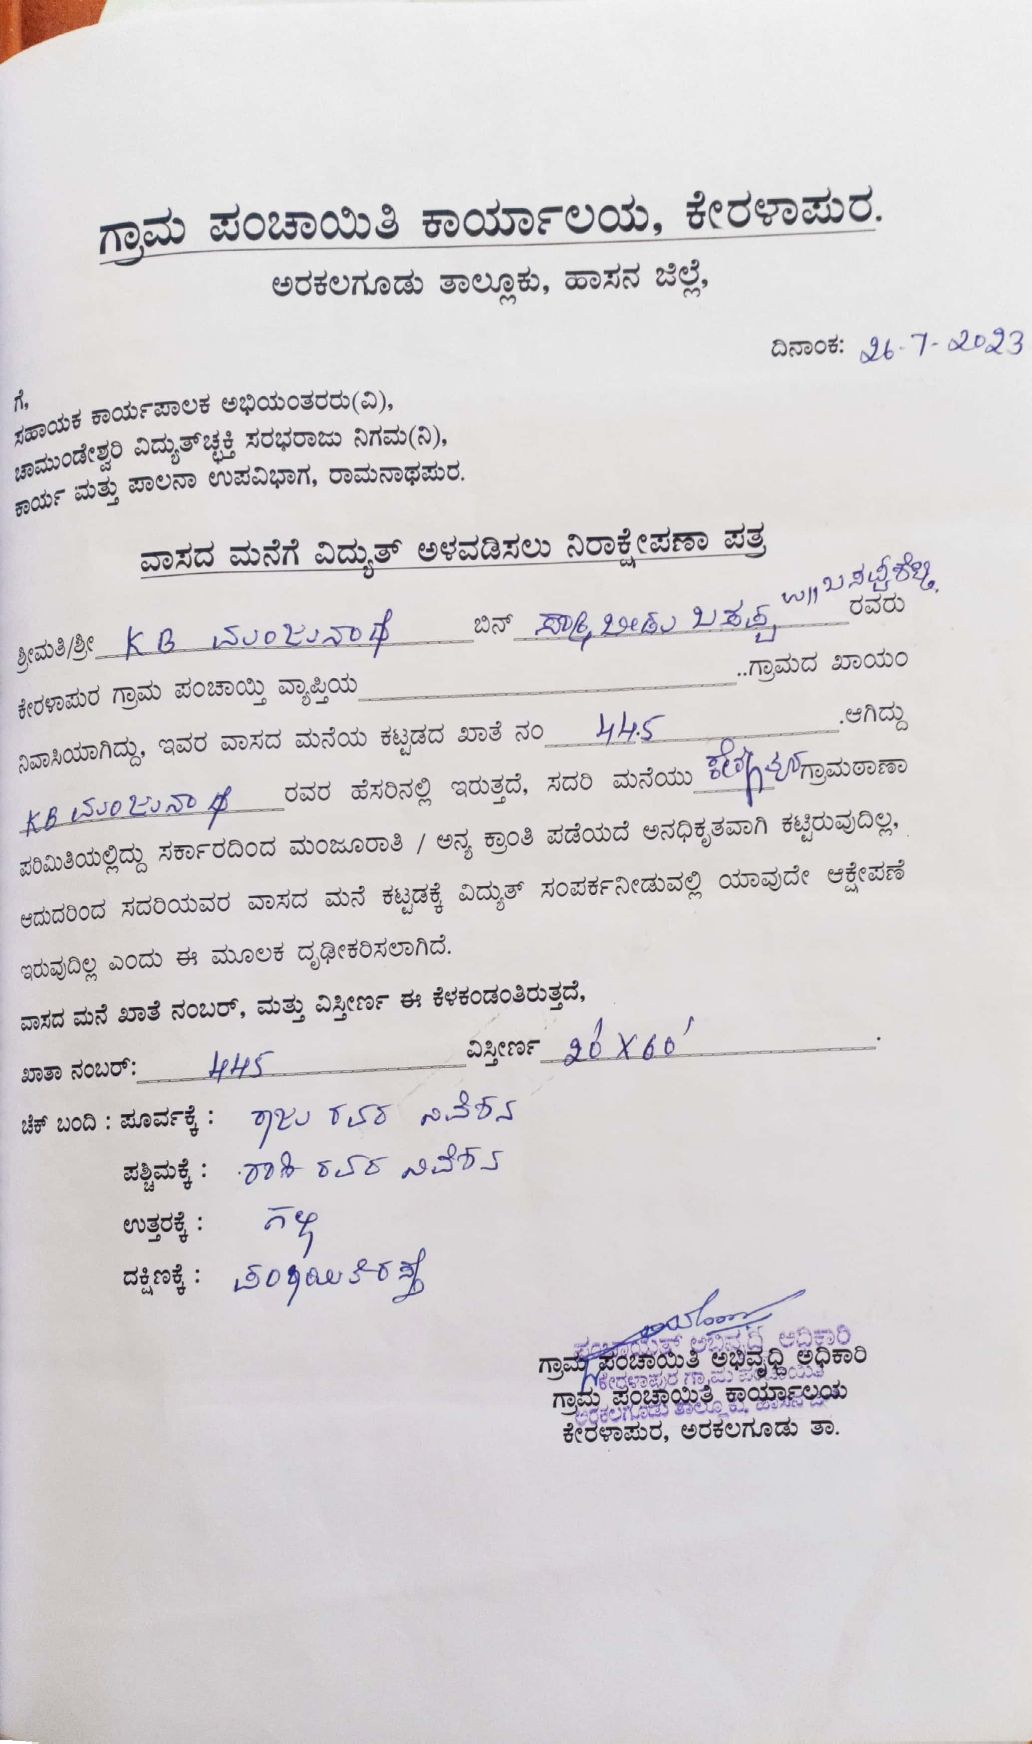 ಗ್ರಾಮ ಪಂಚಾಯಿತಿ ಕಾರ್ಯಾಲಯ, ಕೇರಳಾಪುರ.
ಅರಕಲಗೂಡು ತಾಲ್ಲೂಕು, ಹಾಸನ ಜಿಲ್ಲೆ,
ದಿನಾಂಕ: 26-7-2023
ಗೆ,
ಸಹಾಯಕ ಕಾರ್ಯಪಾಲಕ ಅಭಿಯಂತರರು(ವಿ),
ಚಾಮುಂಡೇಶ್ವರಿ ವಿದ್ಯುತ್‌ಚ್ಛಕ್ತಿ ಸರಭರಾಜು ನಿಗಮ(ನಿ),
ಕಾರ್ಯ ಮತ್ತು ಪಾಲನಾ ಉಪವಿಭಾಗ, ರಾಮನಾಥಪುರ.
ವಾಸದ ಮನೆಗೆ ವಿದ್ಯುತ್ ಅಳವಡಿಸಲು ನಿರಾಕ್ಷೇಪಣಾ ಪತ್ರ
ಶ್ರೀಮತಿ/ಶ್ರೀ KB ಮಂಜುನಾಥ ಬಿನ್ ರವರು
ಕೇರಳಾಪುರ ಗ್ರಾಮ ಪಂಚಾಯ್ತಿ ವ್ಯಾಪ್ತಿಯ ..ಗ್ರಾಮದ ಖಾಯಂ
ನಿವಾಸಿಯಾಗಿದ್ದು, ಇವರ ವಾಸದ ಮನೆಯ ಕಟ್ಟಡದ ಖಾತೆ ನಂ 445 .ಆಗಿದ್ದು
KB ಮಂಜುನಾಥ ರವರ ಹೆಸರಿನಲ್ಲಿ ಇರುತ್ತದೆ, ಸದರಿ ಮನೆಯು ಗ್ರಾಮಠಾಣಾ
ಪರಿಮಿತಿಯಲ್ಲಿದ್ದು ಸರ್ಕಾರದಿಂದ ಮಂಜೂರಾತಿ / ಅನ್ಯ ಕ್ರಾಂತಿ ಪಡೆಯದೆ ಅನಧಿಕೃತವಾಗಿ ಕಟ್ಟಿರುವುದಿಲ್ಲ,
ಆದುದರಿಂದ ಸದರಿಯವರ ವಾಸದ ಮನೆ ಕಟ್ಟಡಕ್ಕೆ ವಿದ್ಯುತ್ ಸಂಪರ್ಕನೀಡುವಲ್ಲಿ ಯಾವುದೇ ಆಕ್ಷೇಪಣೆ
ಇರುವುದಿಲ್ಲ ಎಂದು ಈ ಮೂಲಕ ದೃಢೀಕರಿಸಲಾಗಿದೆ.
ವಾಸದ ಮನೆ ಖಾತೆ ನಂಬರ್, ಮತ್ತು ವಿಸ್ತೀರ್ಣ ಈ ಕೆಳಕಂಡಂತಿರುತ್ತದೆ,
ಖಾತಾ ನಂಬರ್: 445 ವಿಸ್ತೀರ್ಣ 20' X 60' .
ಚೆಕ್ ಬಂದಿ : ಪೂರ್ವಕ್ಕೆ : ರಾಜು ರವರ ನಿವೇಶನ
ಪಶ್ಚಿಮಕ್ಕೆ : ರವರ ನಿವೇಶನ
ಉತ್ತರಕ್ಕೆ : ಗಲ್ಲಿ
ದಕ್ಷಿಣಕ್ಕೆ : ಪಂಚಾಯಿತಿ ರಸ್ತೆ
ಪಂಚಾಯತ್ ಅಭಿವೃದ್ಧಿ ಅಧಿಕಾರಿ
ಗ್ರಾಮ ಪಂಚಾಯಿತಿ ಅಭಿವೃದ್ಧಿ ಅಧಿಕಾರಿ
ಕೇರಳಾಪುರ ಗ್ರಾಮ ಪಂಚಾಯಿತಿ
ಗ್ರಾಮ ಪಂಚಾಯಿತಿ ಕಾರ್ಯಾಲಯ
ಅರಕಲಗೂಡು ತಾಲ್ಲೂಕು, ಹಾಸನ ಜಿಲ್ಲೆ
ಕೇರಳಾಪುರ, ಅರಕಲಗೂಡು ತಾ.